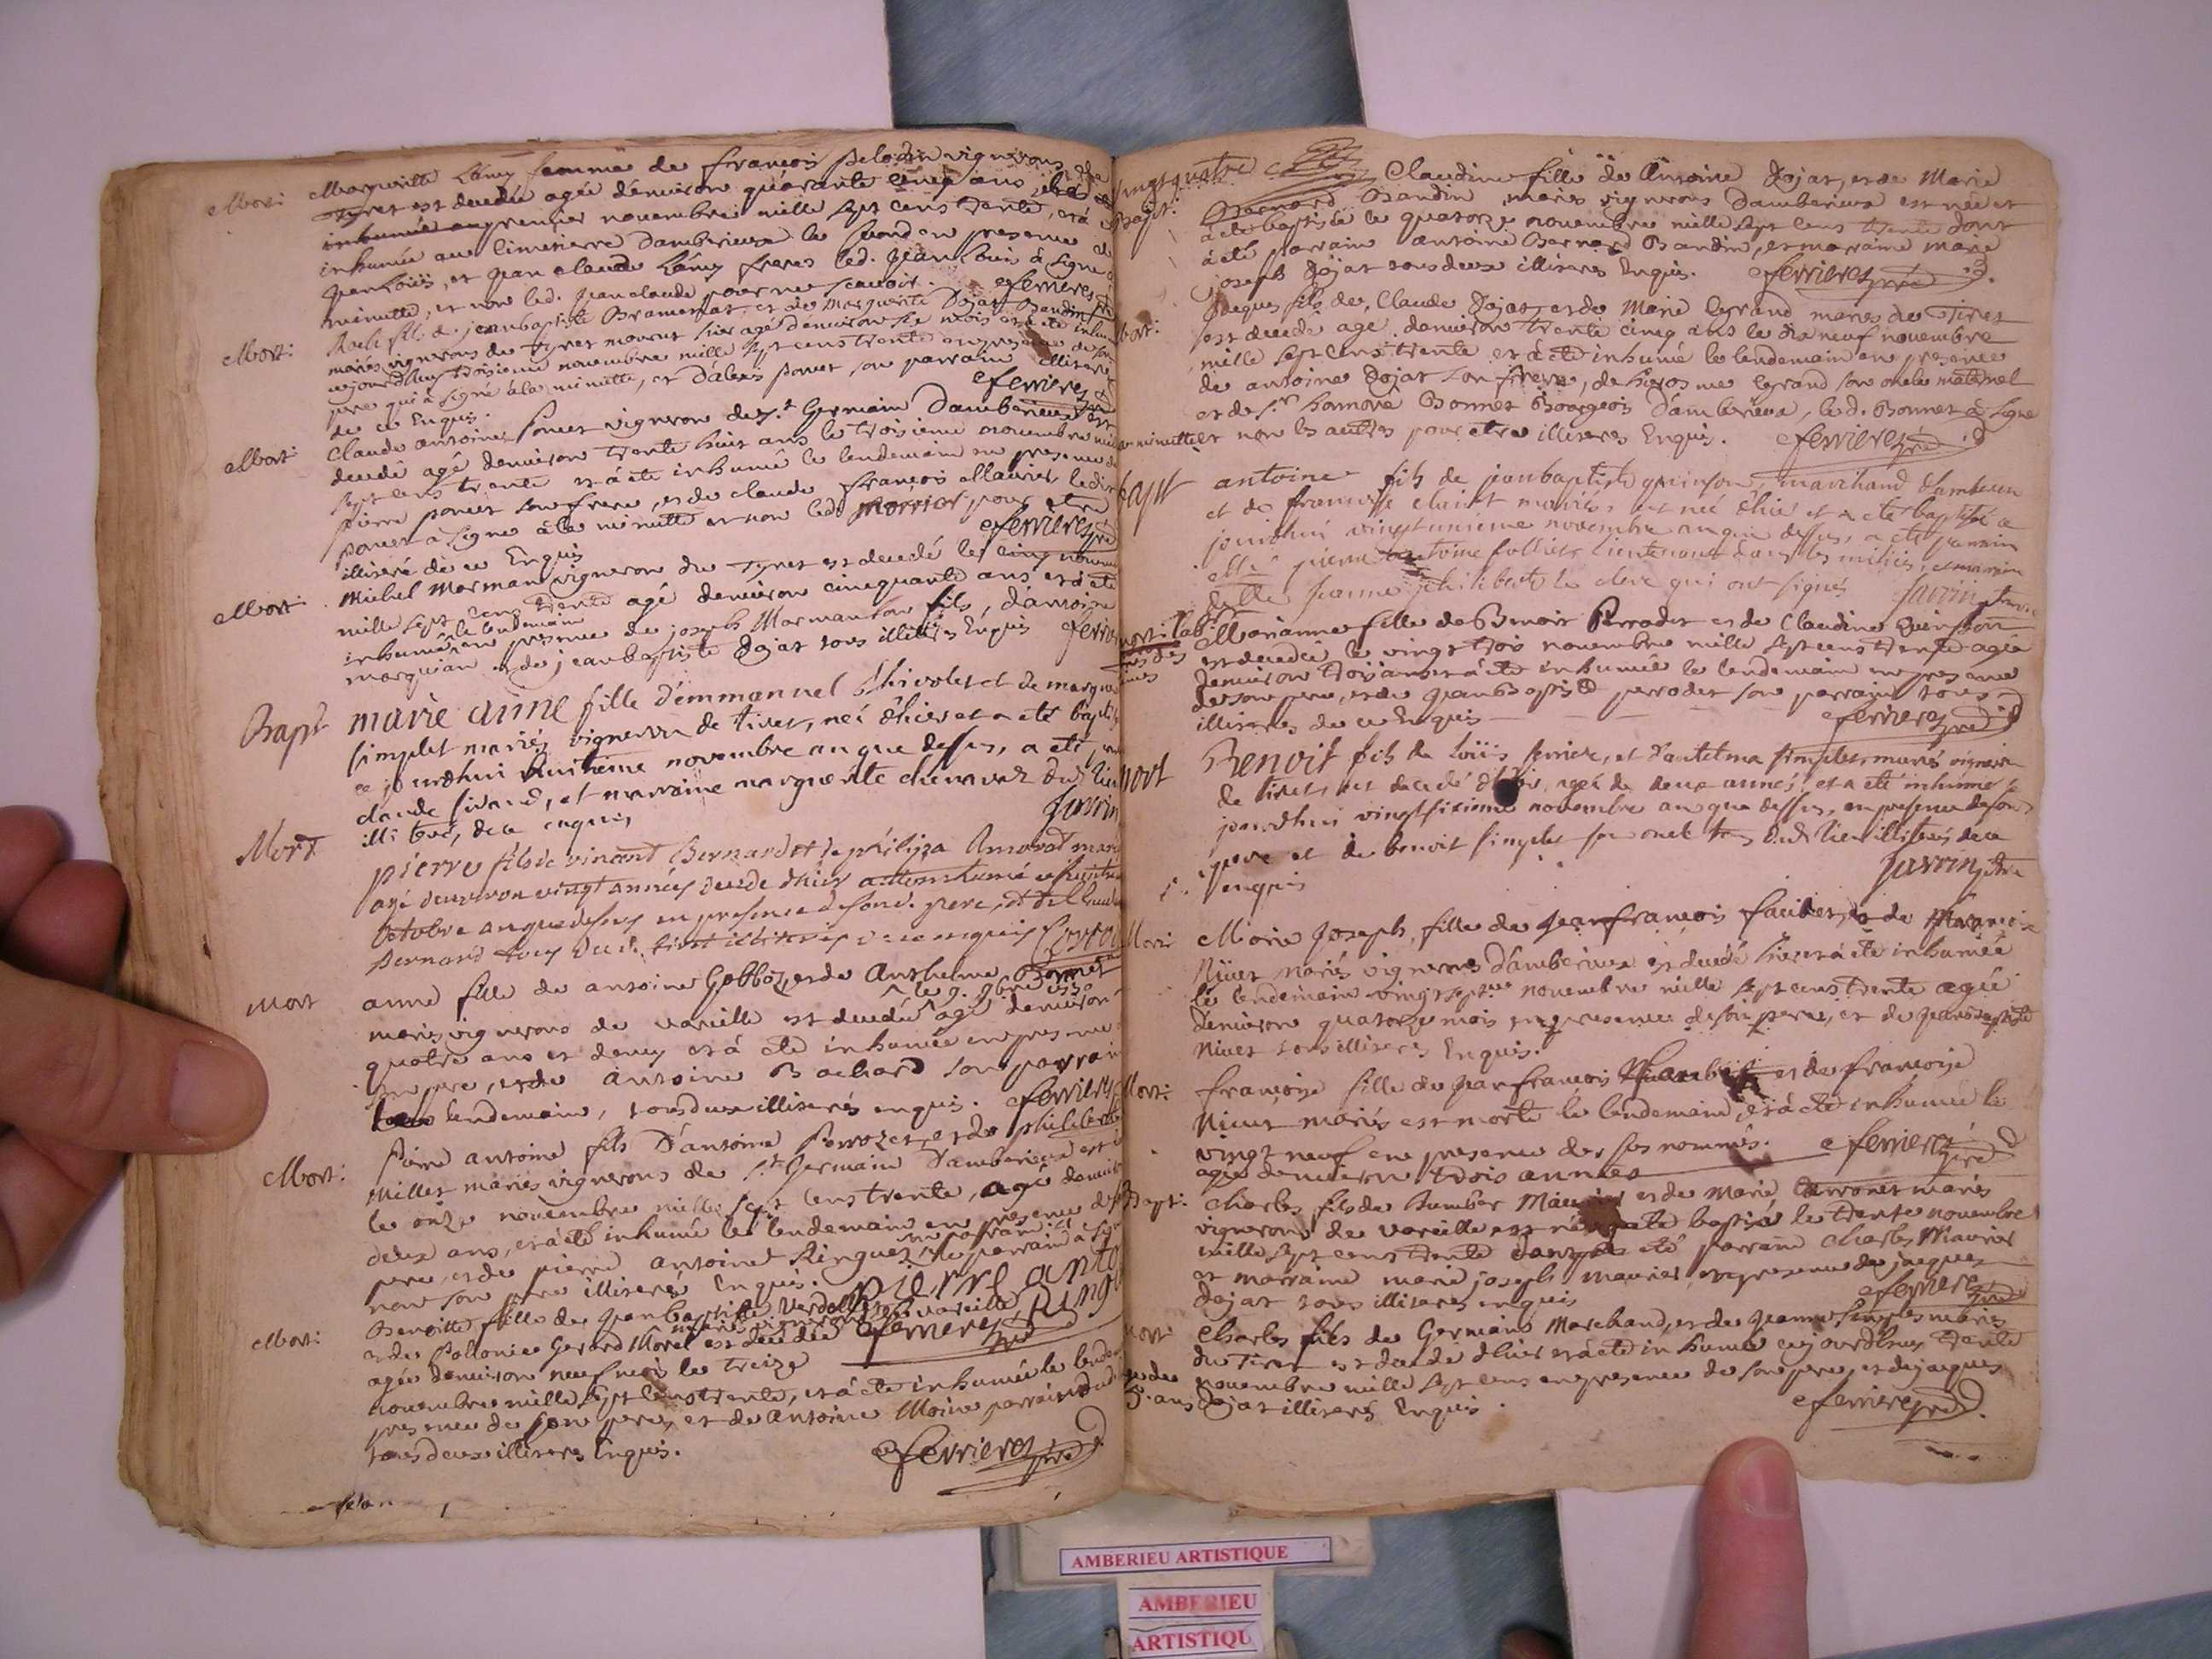 Mort: Marguerite Lamy femme de françois pelodin vignerons du
Tyret est decedée agée d'environ quarante cinq ans
inhumée au premier novembre mille sept cens trente, et à
inhumée au cimetierre d'amberieux le second en presence de
Jean Loüis, et Jean claude Lamy freres led. Jean Loüis à signé
minutte, et non led. Jean claude pour ne scavoir. ferrieres pre
Mort: fils de jean baptiste Bramerat, et de Marguerite Dojat Bandin
mariés vignerons du Tyret mourut hier agé d'environ six mois et a été inhumé
aujourd'huy troisieme novembre mille sept cens trente en presence de son
pere qui à signé à la minutte, et d'alexis poncet son parrain illiteré
de ce Enquis. ferrieres pre
Mort: Claude antoine Poncet vigneron de St Germain d'amberieux est
decedé agé d'environ trente huit ans le troisieme novembre mille
sept cens trente et à été inhumé le lendemain en presence de
pierre poncet son frere, et de claude françois Mavier led.
poncet à signé à la minutte et non led. pour etre
illiteré de ce Enquis ferrieres pre
Mort: Michel Morman vigneron du Tyret est decedé le cinq novem
mille sept cens trente agé d'environ cinquante ans et à été
inhumé le lendemain en presence de joseph Morman son fils, d'antoine
marguian et de jean baptiste Dojat tous illiterés Enquis ferrieres
Bapt marie anne fille d'emmanuel Chivolet et de margue
simplet mariés vigneron de tiret, neé d'hier et a eté baptis
ce jourdhui huitieme novembre an que dessus, a eté
claude sivand, et marraine marguerite chenavaz dud. lieu
illiterés, de ce enquis Jarrin
Mort pierre fils de vincent Bernard et de philippa Amorad mariés
agé denviron vingt années decede dhier a este inhumé ce huitie
octobre an que dessus en presence de sond. pere, et de Claude
Bernard tous dud. tiret illiterés de ce enquis
Mort anne fille de antoine Gobboz, et de Anthelme Bonnet
mariés vignerons de vareille est decedée le 9. 9bre 1730 agé denviron
quatre ans et demy et à été inhumée en presence
son pere, et de antoine Bachard son parrain
le lendemain, tous deux illiterés enquis. ferrieres
Mort: Pierre antoine fils d'antoine Perrozet, et de philiberte
Millet mariés vignerons de St Germain d'amberieux est
le onze novembre mille sept cens trente, agé denviron
deux ans, et à été inhumé le lendemain en presence de son
pere, et de pierre antoine Ringuet, son parrain, le parrain à signé
non son pere illiteré Enquis. pierre anto
Ring
Mort: Benoitte fille de Jean baptiste Verdollet
mariés vignerons de vareille
et de Pollonie Gerard Morel est decedée ferrieres pre
agée denviron neuf mois le treize
novembre mille sept cens trente, et à été inhumée le lende
presence de son pere, et de antoine Moine parrain
tous deux illiterés Enquis. ferrieres pre
vingt quatre
Bapt: Claudine fille de Antoine Dojat, et de Marie
Bernard Bandin mariés vignerons d'amberieux est née et
à été baptisée le quatorze novembre mille sept cens trente dont
à été parrain antoine Bernard Bandin, et marraine marie
joseph Dojat tous deux illiterés Enquis. ferrieres pre
Mort: Jaques fils de, Claude Dojat et de Marie legrand mariés de Tiret
est decedé agé d'environ trente cinq ans le dix neuf novembre
mille sept cens trente et à été inhumé le lendemain en presence
de antoine Dojat son frere, de hierosme legrand son oncle maternel
et de Sr. honnoré Bonnet Bourgeois d'amberieux, led. Bonnet à signé
la minutte et non les autres pour etre illiterés Enquis. ferrieres pre
bapt antoine fils de jean baptiste guinson, marchand d'amberieu
et de françoise clairet mariés, est né d'hier et a eté baptisé a
jourdhui vingt unieme novembre an que dessus, a eté parrain
Me pierre antoine follier lieutenant dans les milices, et marraine
delle Jeanne philiberte le clerc qui ont signés Jarrin ptre
Mort: Marianne fille de Benoit Perrodet et de Claudine Quinson
est decedée le vingt trois novembre mille sept cens trente agée
d'environ trois ans et à été inhumée le lendemain en presence
de son pere, et de Jean Baptiste perrodet son parrain tous
illiterés de ce Enquis ferrieres pre
Mort Benoit fils de Loüis ferriere, et d'antelma simplet, mariés vigneron
de tiret, est decedé d'hier, agé de deux années et a eté inhumé ce
jourdhui vingt sixieme novembre an que dessus, en presence de son
pere et de benoit simplet son oncle tous dud. lieu illiterés de ce
enquis Jarrin ptre
Mort Marie Joseph, fille de Jean françois faulet, et de françoise
Nivet mariés vignerons d'amberieux est decedé hier et à été inhumée
le lendemain vingt sept.me novembre mille sept cens trente agée
d'environ quatorze mois en presence de son pere, et de Jean baptiste
Nivet tous illiterés Enquis.
Mort: françoise fille de Jean françois et de françoise
Nivet mariés est morte le lendemain et à été inhumée le
vingt neuf en presence des sus nommés. ferrieres pre
agée denviron trois années
Bapt: Charles fils de humber Maurier et de Marie Carronet mariés
vignerons de vareille est né et a été baptisé le trente novembre
mille sept cens trente dont a été parrain Charles Maurier
et marraine marie joseph maurier en presence de jacques
Dojat tous illiterés enquis ferrieres pre
Mort Charles fils de Germain Marchand, et de Jeanne Simplet mariés
du Tiret est decedé d'hier et à été inhumé aujourdhuy trente
novembre mille sept cens en presence de son pere, et de jacques
agé de 3. ans Dojat illiterés Enquis. ferrieres pre
AMBERIEU ARTISTIQUE
AMBERIEU
ARTISTIQU